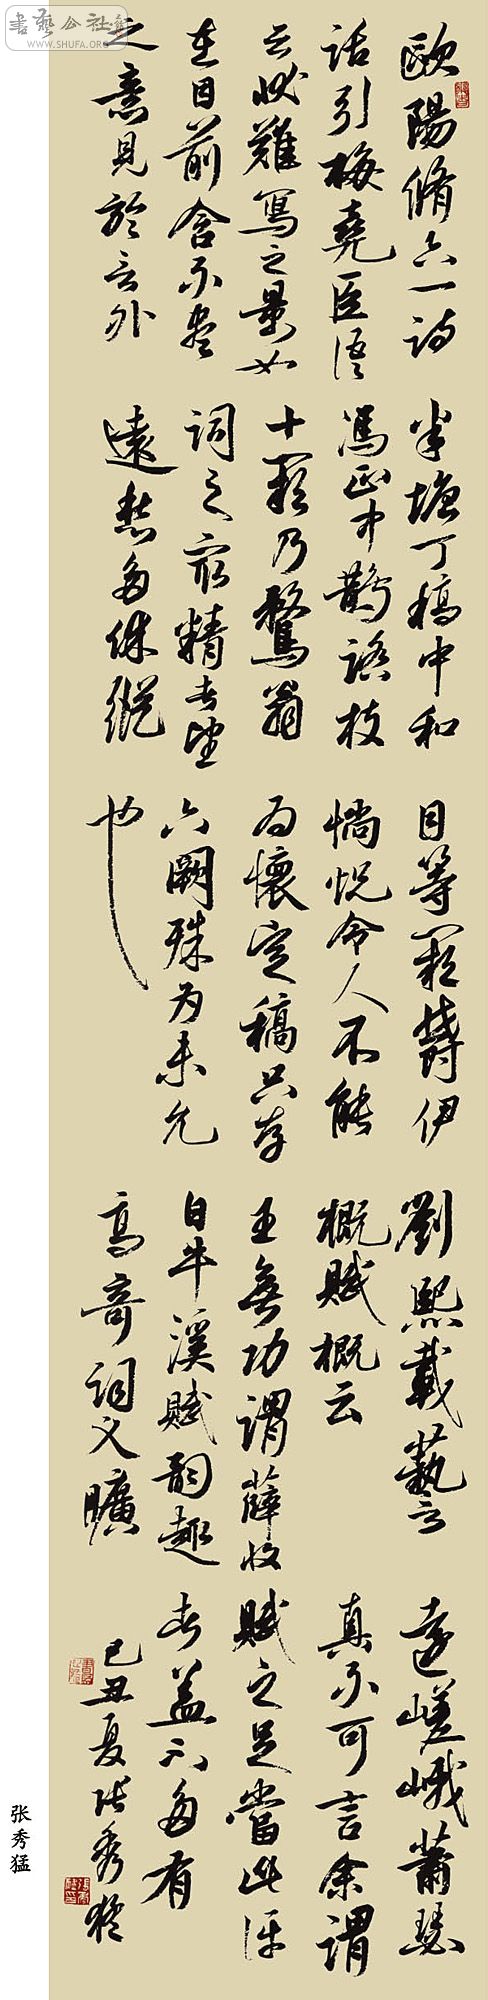 書藝公社
WWW.SHUFA.ORG
歐陽脩六一詩
話引梅堯臣語
云狀難寫之景如
在目前含不盡
之意見於言外
半塘丁稿中和
馮正中鵲踏枝
十闋乃鶩翁
詞之最精者望
遠愁多休縱
目等闋鬱伊
惝怳令人不能
為懷定稿只存
六闋殊為未允
也
劉熙載藝
概賦概云
王無功謂薛收
白牛溪賦韻趣
高奇詞义曠
遠嵯峨蕭瑟
真不可言余謂
賦之足當此評
者蓋不多有
己丑夏張秀猛
张秀猛